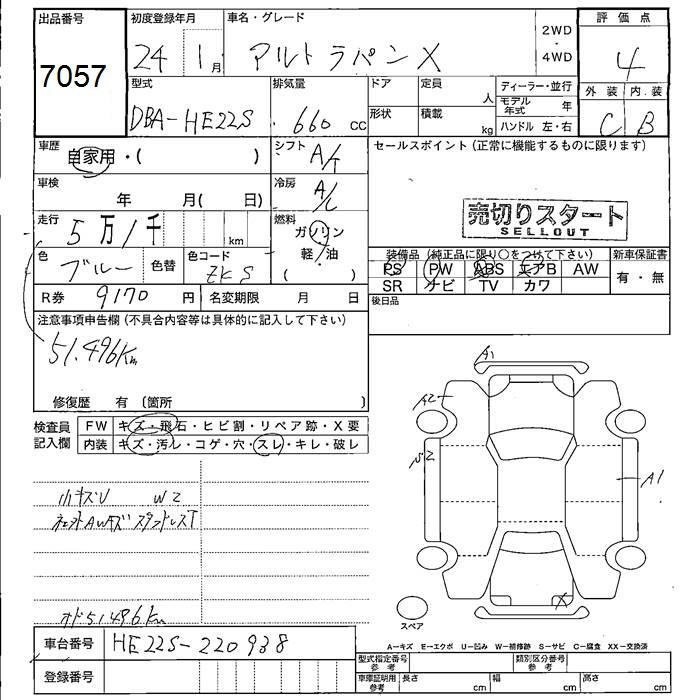 出品番号
7057
初度登録年月
24 1月
車名・グレード
アルトラパン X
2WD
・
4WD
評価点
4
型式
DBA-HE22S
排気量
660 cc
ドア
定員
人
形状
積載
kg
ディーラー・並行
モデル年式 年
ハンドル 左・右
外装 内装
C B
車歴
自家用・( )
シフト
A/T
セールスポイント (正常に機能するものに限ります)
車検
年 月( 日)
冷房
A/C
売切りスタート
SELLOUT
走行
5万1千 km
燃料
ガソリン
軽/油
色
ブルー
色替
色コード
ZKS
装備品 (純正品に限り○をつけて下さい)
PS PW ABS エアB AW
SR ナビ TV カワ
新車保証書
有・無
R券 9170 円
名変期限 月 日
後日品
注意事項申告欄 (不具合内容等は具体的に記入して下さい)
51.496Km
修復歴 有 (箇所 )
検査員
記入欄
FW キズ・飛石・ヒビ割・リペア跡・X要
内装 キズ・汚レ・コゲ・穴・スレ・キレ・破レ
A1
A2
A1
X
小キズU W2
スタッドレスT
オド51496km
スペア
A-キズ E-エクボ U-凹み W-補修跡 S-サビ C-腐食 XX-交換済
車台番号 HE22S-220938
登録番号
型式指定番号
参考
類別区分番号
参考
車庫証明用
参考
長さ cm
幅 cm
高さ cm